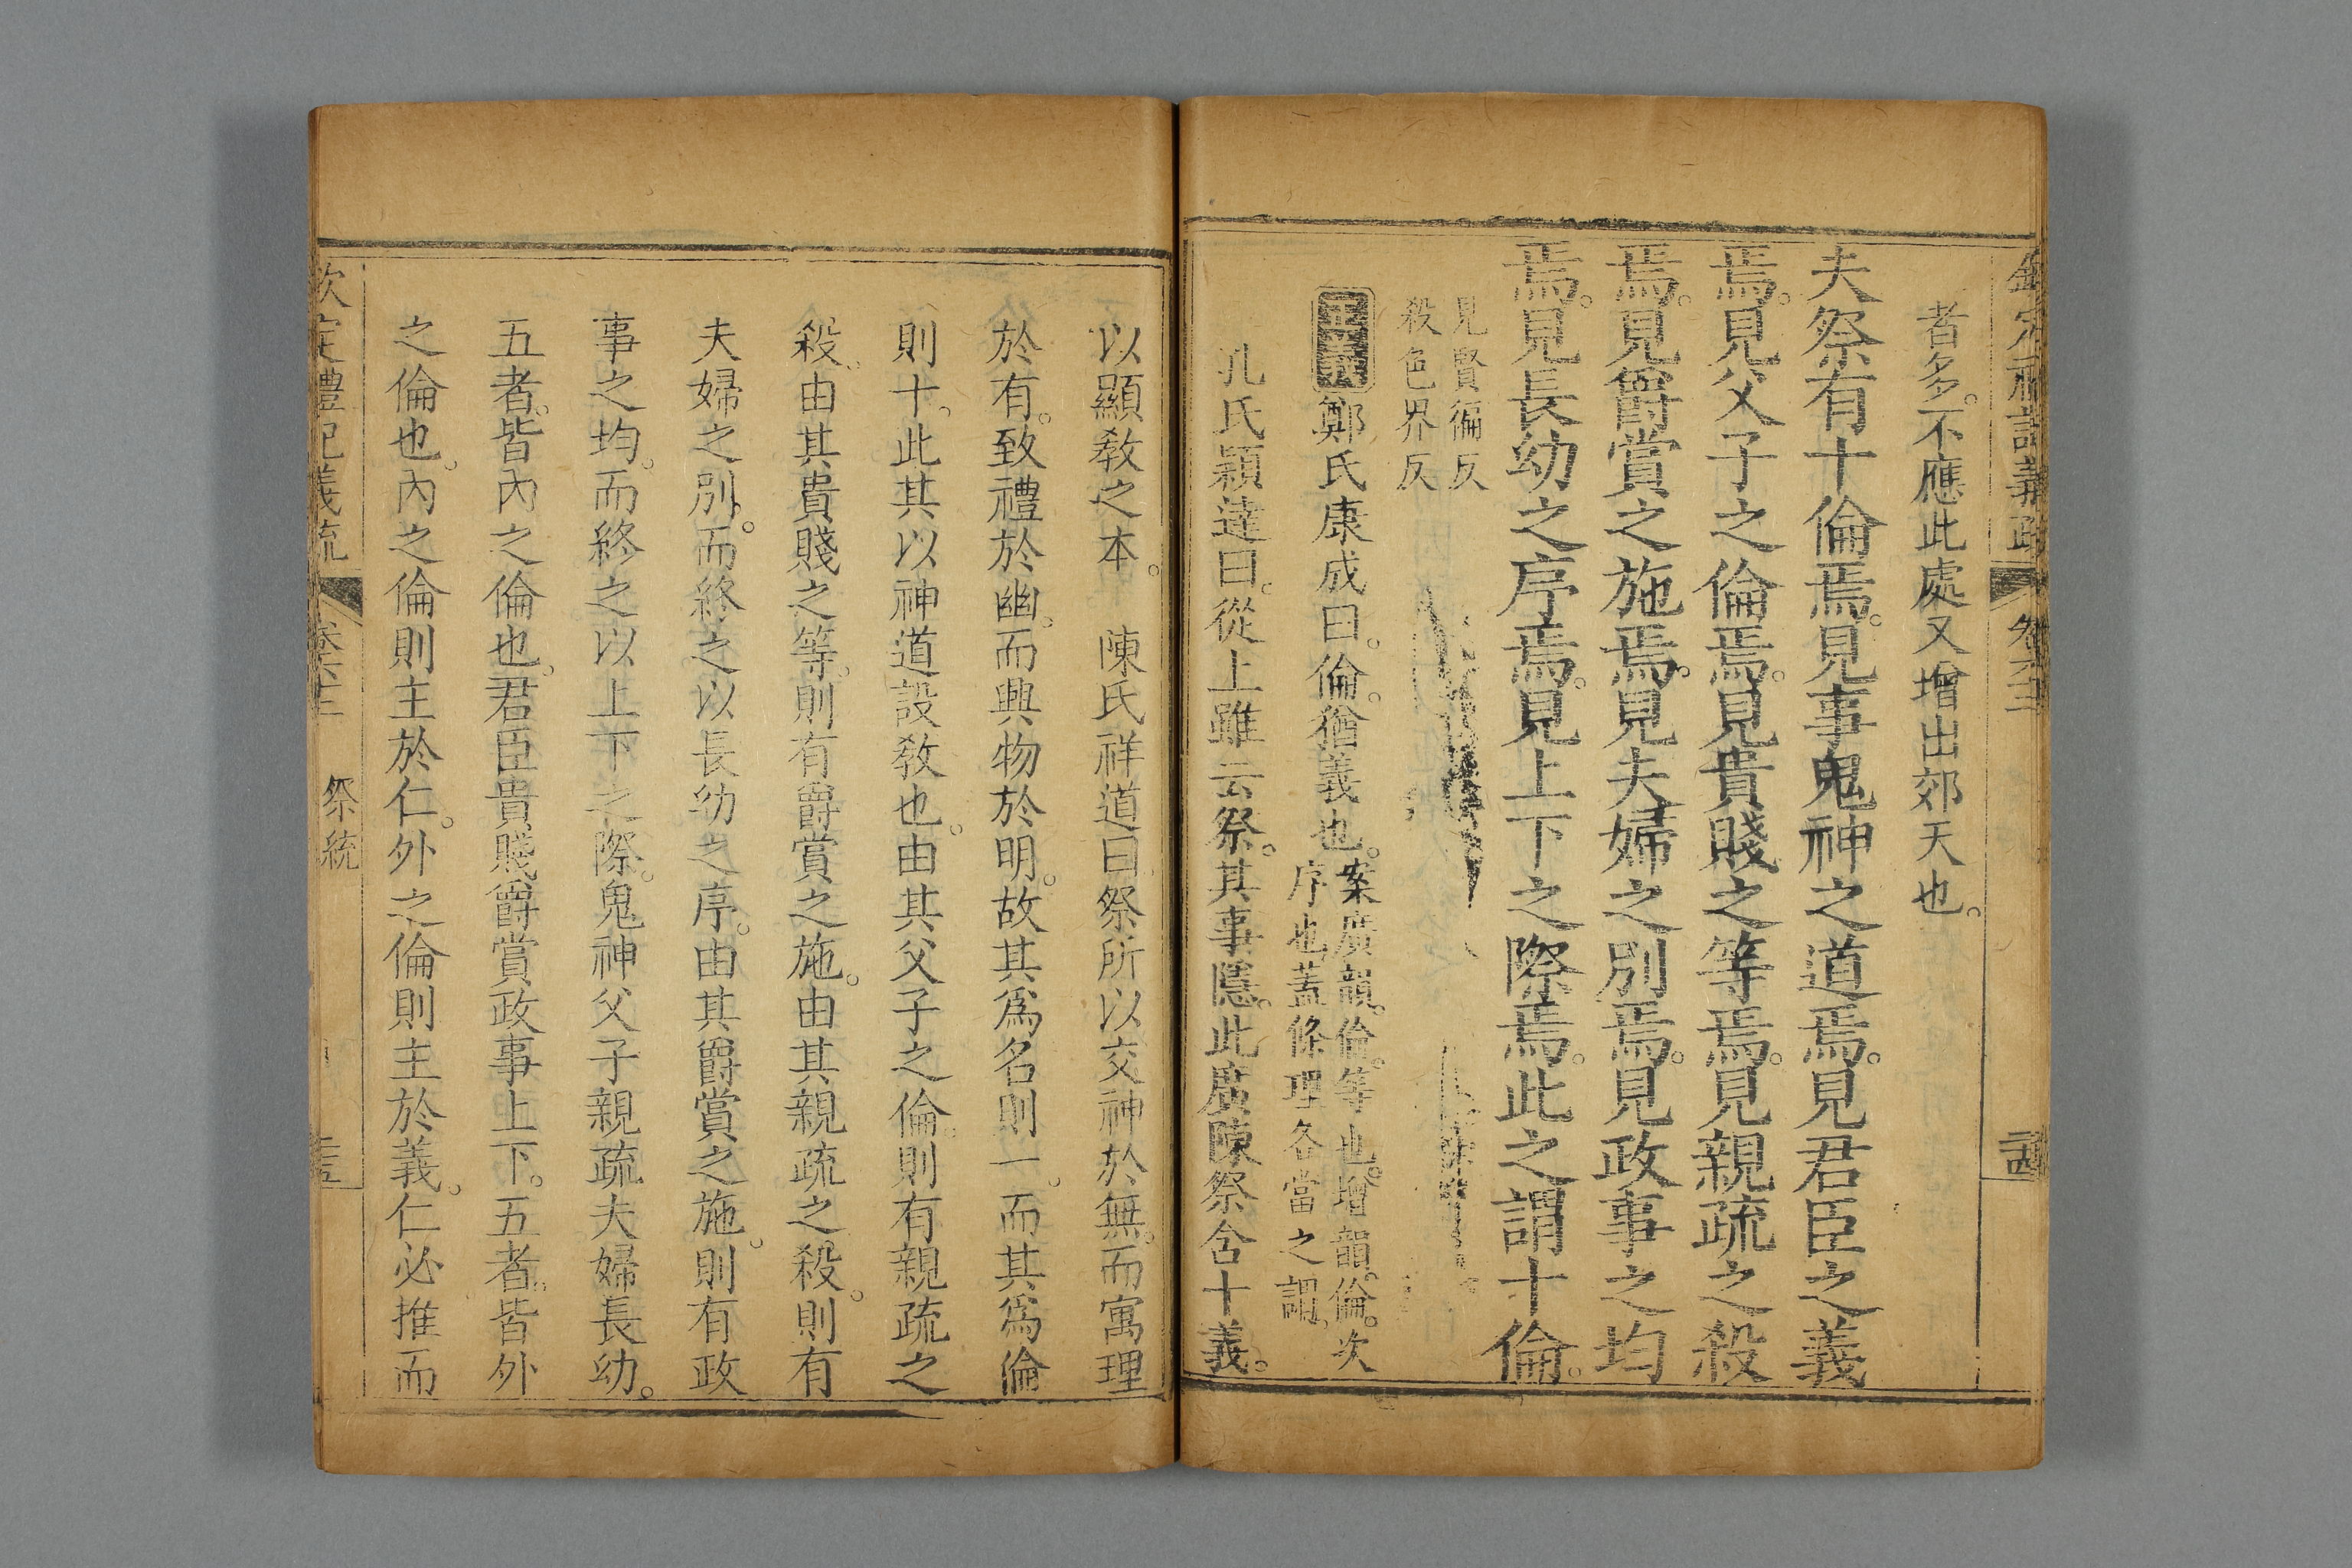 欽定禮記義疏 卷六十三 二十四
者多。不應此處又增出郊天也。
夫祭有十倫焉。見事鬼神之道焉。見君臣之義
焉。見父子之倫焉。見貴賤之等焉。見親疏之殺
焉。見爵賞之施焉。見夫婦之別焉。見政事之均
焉。見長幼之序焉。見上下之際焉。此之謂十倫。
見賢徧反
殺色界反
正義 鄭氏康成曰。倫。猶義也。案廣韻。倫。等也。增韻。倫。次
序也蓋條理各當之謂。
孔氏穎達曰。從上雖云祭。其事隱。此廣陳祭含十義。
以顯敎之本。 陳氏祥道曰祭所以交神於無。而寓理
於有。致禮於幽。而興物於明。故其爲名則一。而其爲倫
則十。此其以神道設敎也。由其父子之倫。則有親疏之
殺。由其貴賤之等。則有爵賞之施。由其親疏之殺。則有
夫婦之別。而終之以長幼之序。由其爵賞之施。則有政
事之均。而終之以上下之際。鬼神父子親疏夫婦長幼。
五者。皆內之倫也。君臣貴賤爵賞政事上下。五者。皆外
之倫也。內之倫則主於仁。外之倫則主於義。仁必推而
欽定禮記義疏 卷六十三 祭統 二十五